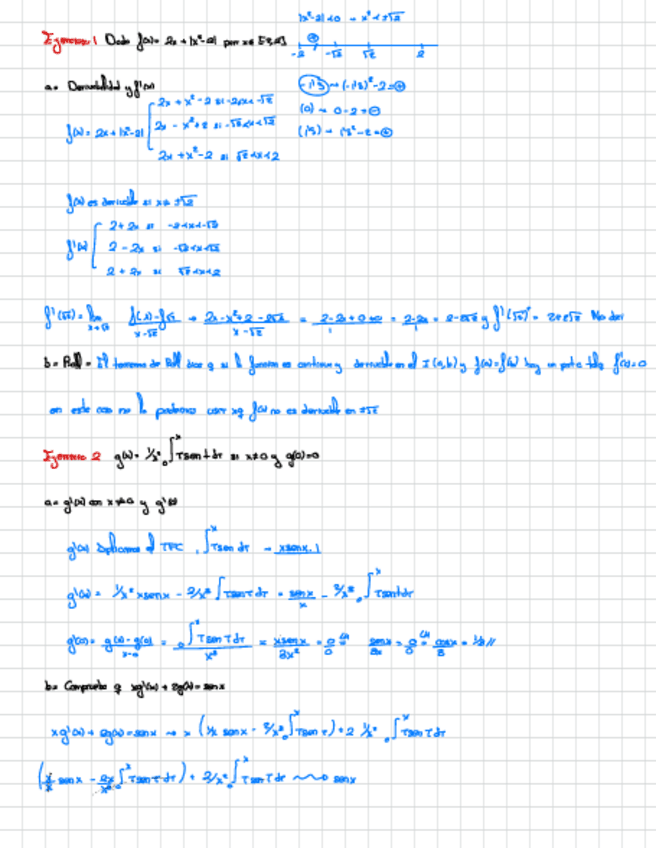 |x²-2|<0 → x²<±√2
Ejercicio 1 Dado f(x)= 2x + |x²-2| para x∈ [-2,2]
-2 -√2 √2 2
a= Derivabilidad y f'(x)
(-1'5) → (-1'5)²-2=⊕
2x + x²-2 si -2<x<-√2
f(x)= 2x+|x²-2| 2x - x²+2 si -√2<x<√2
(0) → 0-2=⊖
(1'5) → 1'5²-2=⊕
2x +x²-2 si √2<x<2
f(x) es derivable si x≠ ±√2
2+2x si -2<x<-√2
f'(x) 2-2x si -√2<x<√2
2+2x si √2<x<2
= 2-2x = 2-2√2 y f'(√2)⁺= 2+2√2 No der
b= Roll = El teorema de Roll dice q si la funcion es continua y derivable en el I(a,b) y f(a)=f(b) hay un punto tal q f'(x)=0
en este caso no lo podemos usar xq f(x) no es derivable en ±√2
Ejercicio 2 g(x)= 1/x² ₀∫ˣ Tsent dt si x≠0 y g(0)=0
a= g'(x) con x≠0 y g'(0)
g'(x) Aplicamos el TFC , ∫ˣ Tsen dt → xsenx.1
g'(x)= 1/x² xsenx - 2/x³ ∫ TsenT dT = senx/x - 2/x³ ₀∫ˣ Tsent dt
g'(0)= g(x)-g(0)/x-0 = ₀∫ˣ TsenT dT/x³ = xsenx/3x² = 0/0 senx/3x = 0/0 = cosx/3 = 1/3//
b= Comprueba q xg'(x) + 2g(x) = senx
xg'(x) + 2g(x) = senx → x (1/x senx - 2/x³ ₀∫ˣ TsenT) + 2 1/x² ₀∫ˣ TsenT dT
(x/x senx - 2x/x³ ∫ˣ TsenT dT) + 2/x² ₀∫ˣ TsenT dT ⟿ senx